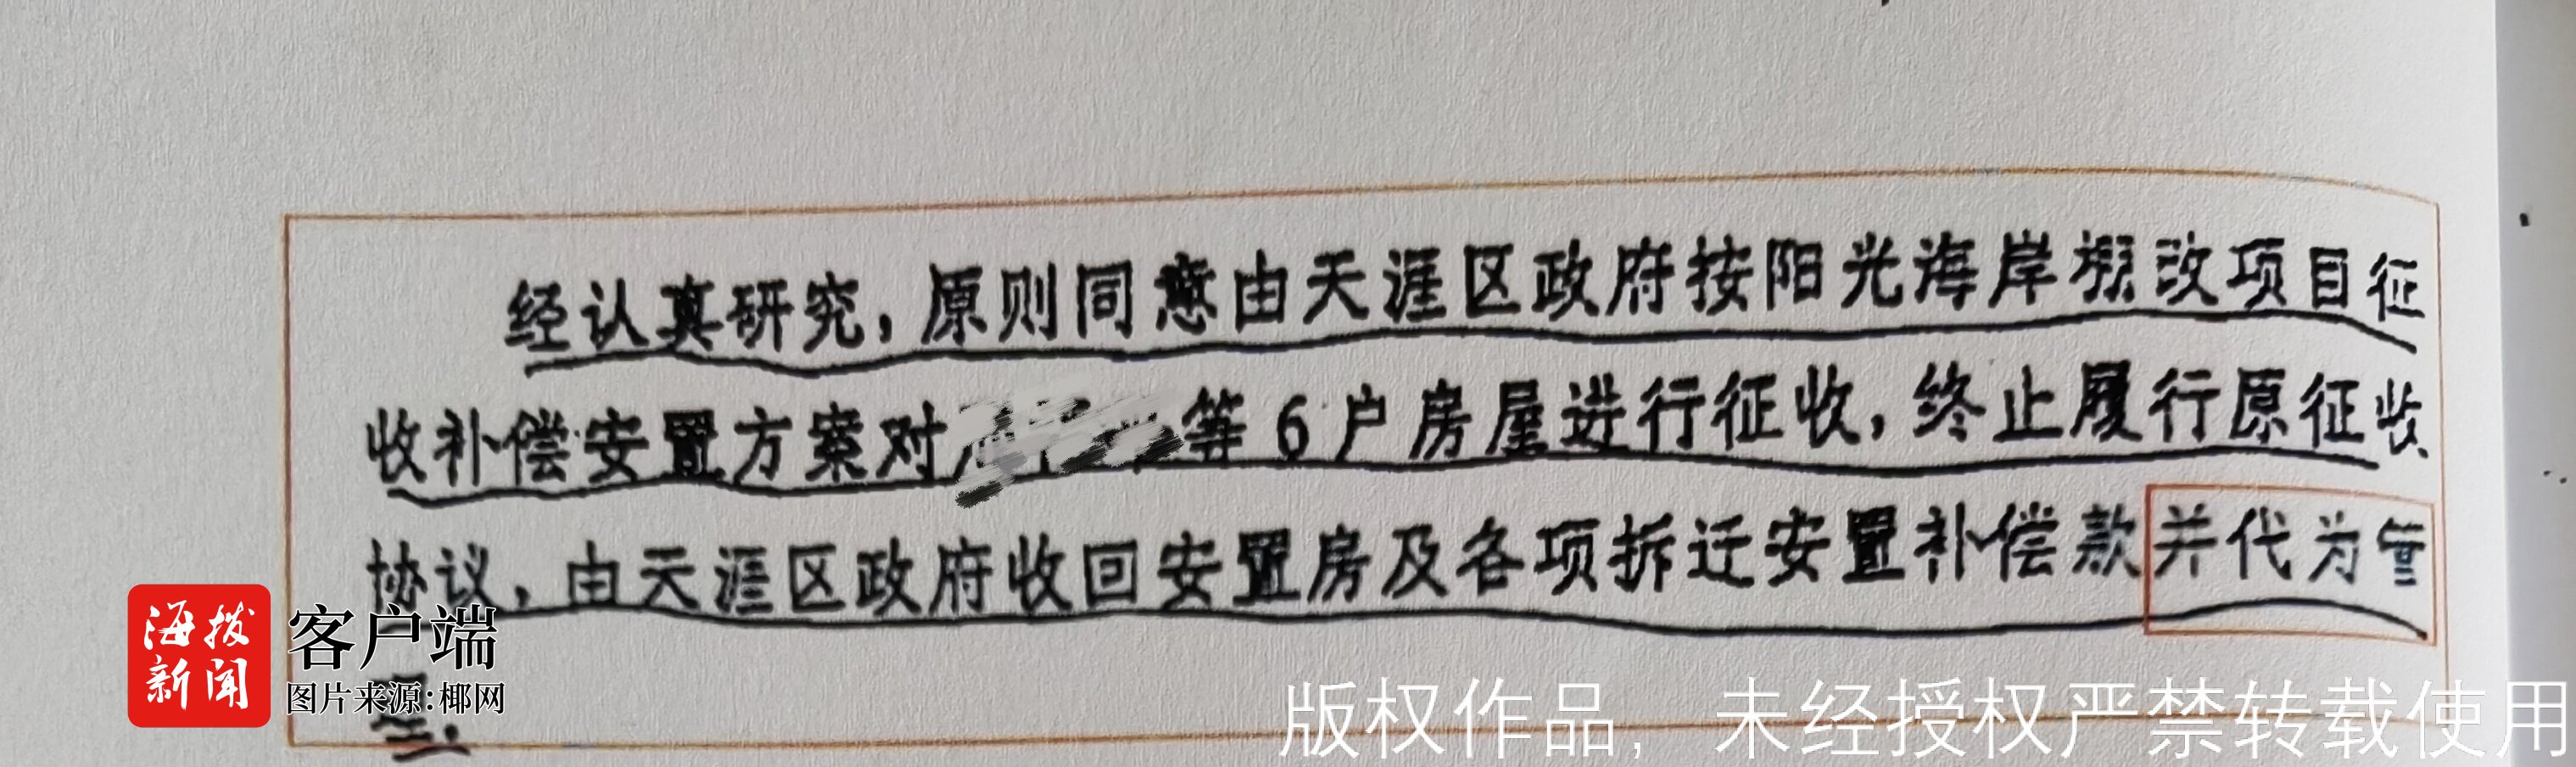 经认真研究，原则同意由天涯区政府按阳光海岸棚改项目征
收补偿安置方案对等6户房屋进行征收，终止履行原征收
协议，由天涯区政府收回安置房及各项拆迁安置补偿款并代为管
理。
海拔
新闻
客户端
图片来源:椰网
版权作品，未经授权严禁转载使用